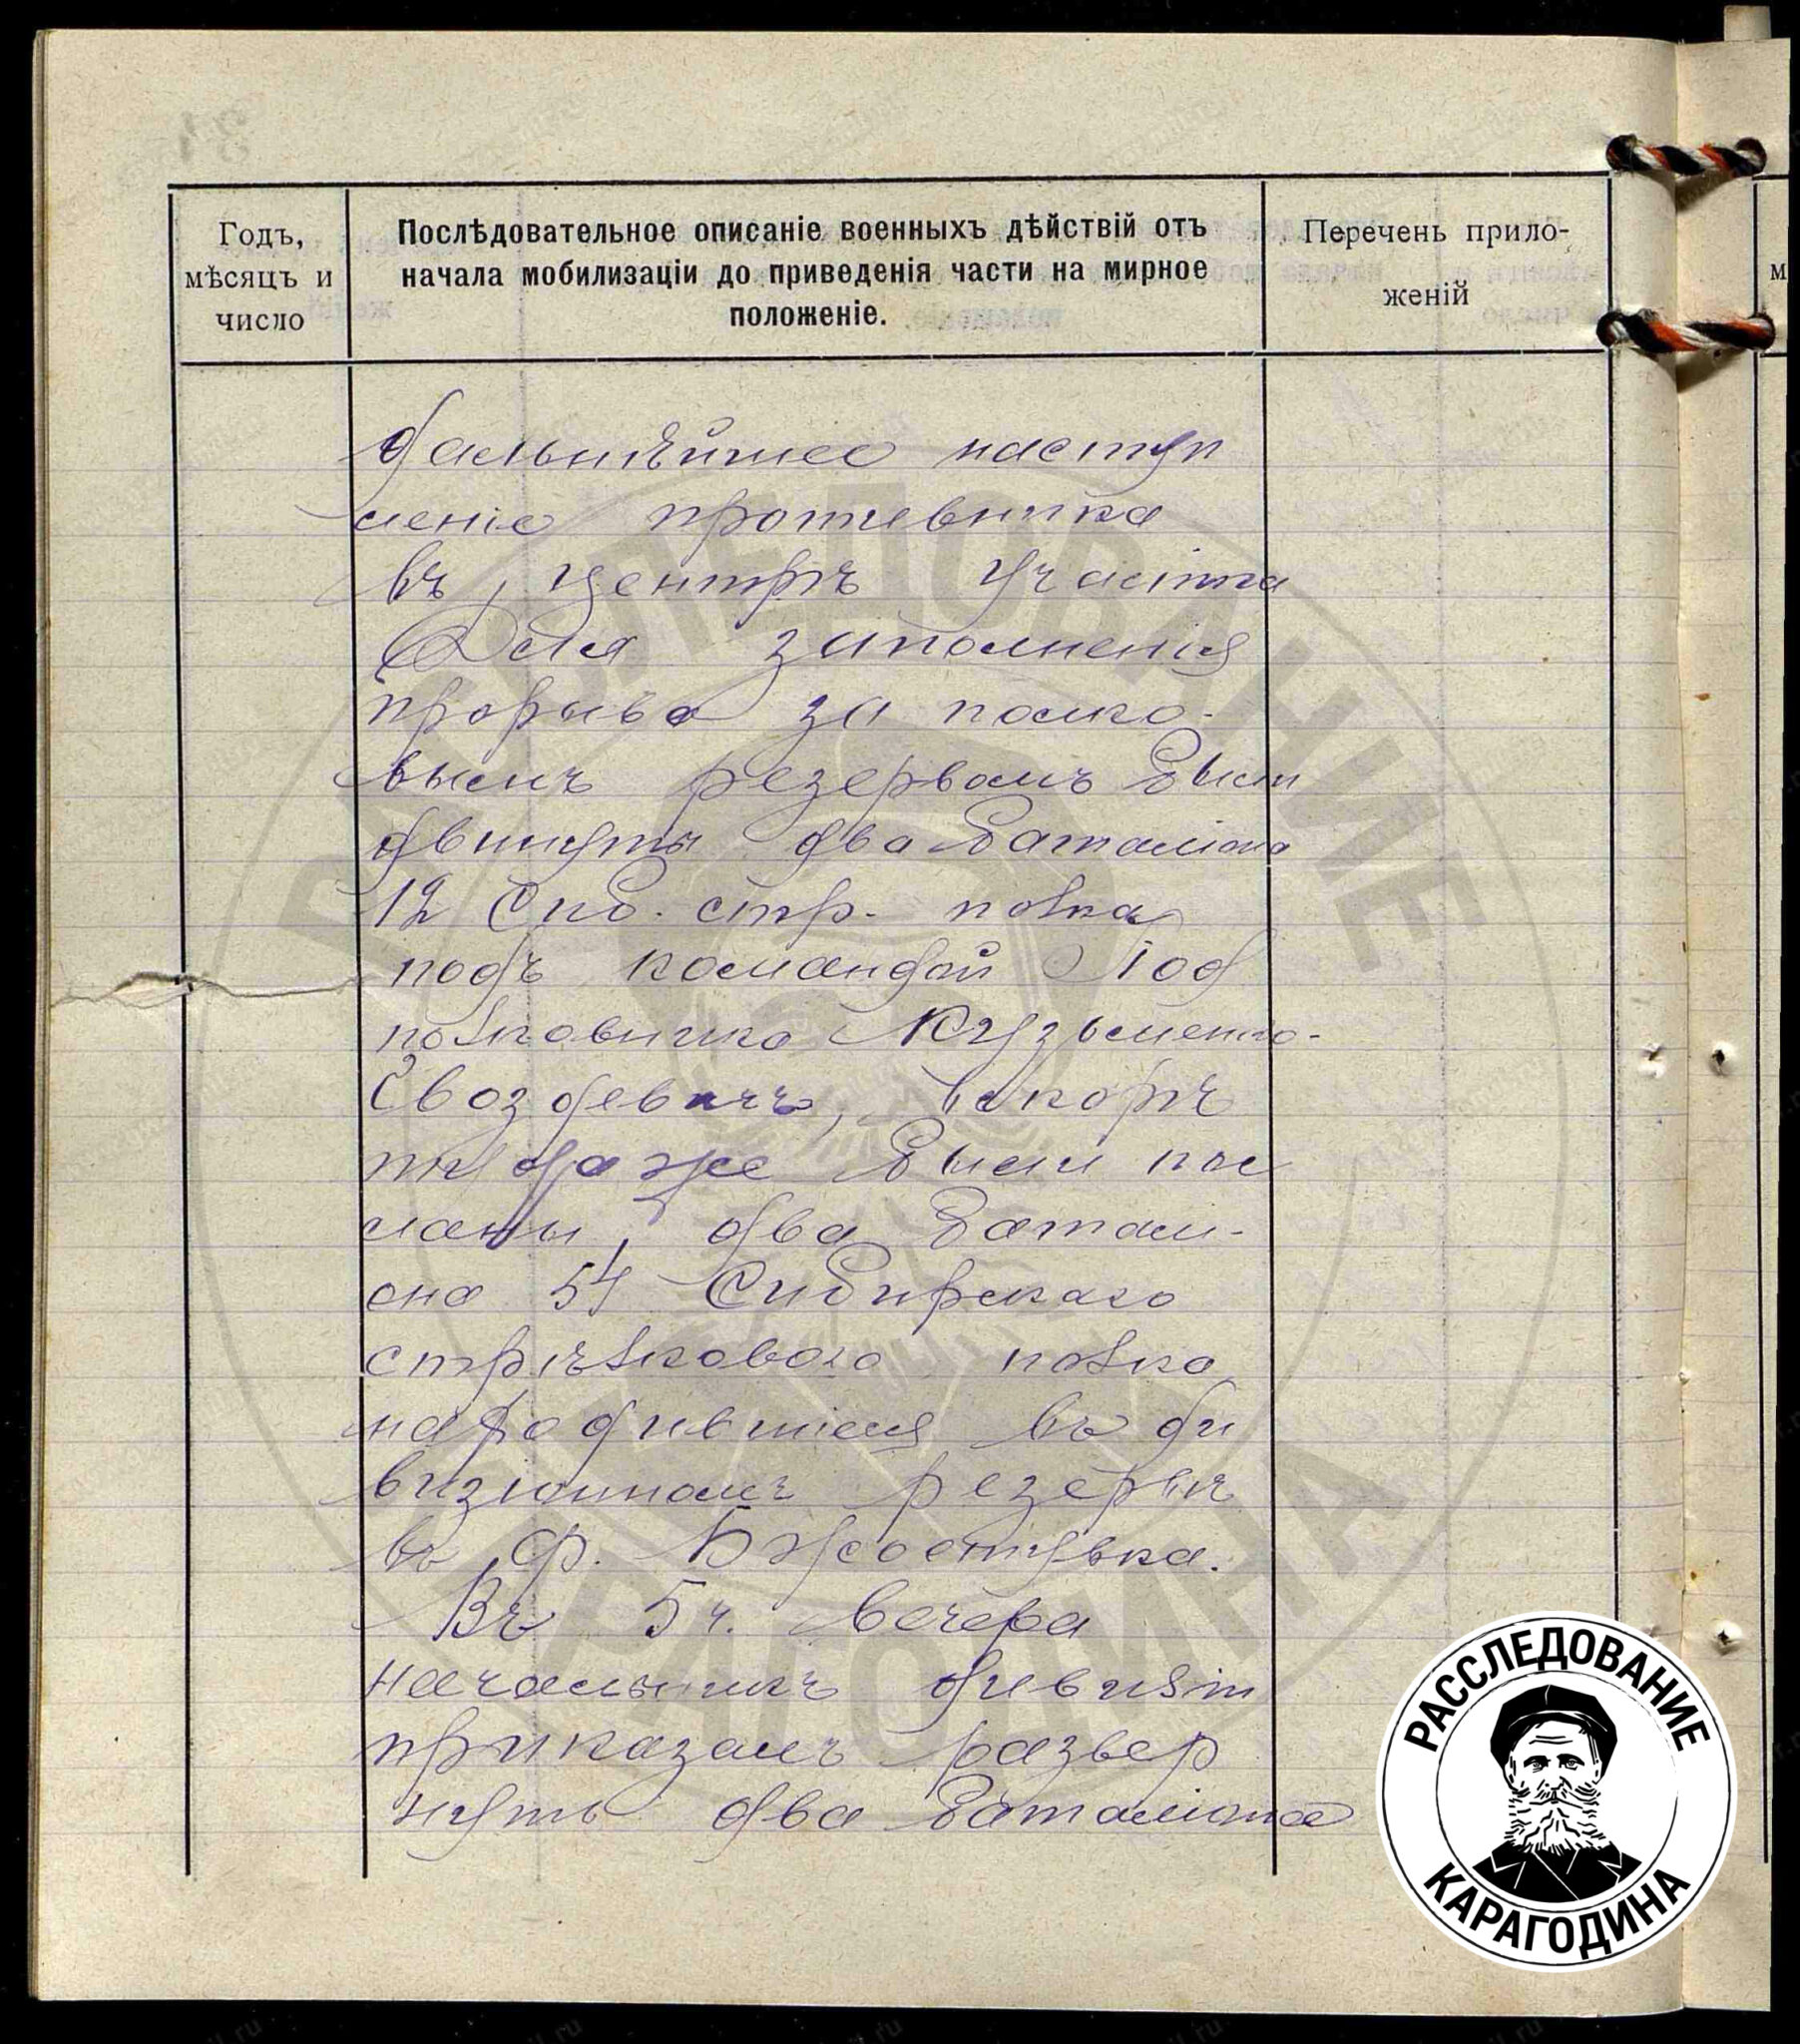 Годъ,
мѣсяцъ и
число
Послѣдовательное описаніе военныхъ дѣйствій отъ
начала мобилизаціи до приведенія части на мирное
положеніе.
Перечень прило-
женій
дальнѣйшее наступ
леніе противника
въ центрѣ участка
Для заполненія
прорыва за полко-
вымъ резервомъ были
двинуты два баталіона
12 Сиб. стр. полка
подъ командой Под
полковника Кузьменко-
Гвоздевичъ, вскорѣ
туда же были пос
ланы два батали-
она 54 Сибирскаго
стрѣлковаго полка
находившіеся въ ди
визіонномъ резервѣ
въ ф.
Въ 5 ч. вечера
начальникъ дивизіи
приказалъ развер
нуть два баталіона
РАССЛЕДОВАНИЕ
КАРАГОДИНА
РАССЛЕДОВАНИЕ
КАРАГОДИНА